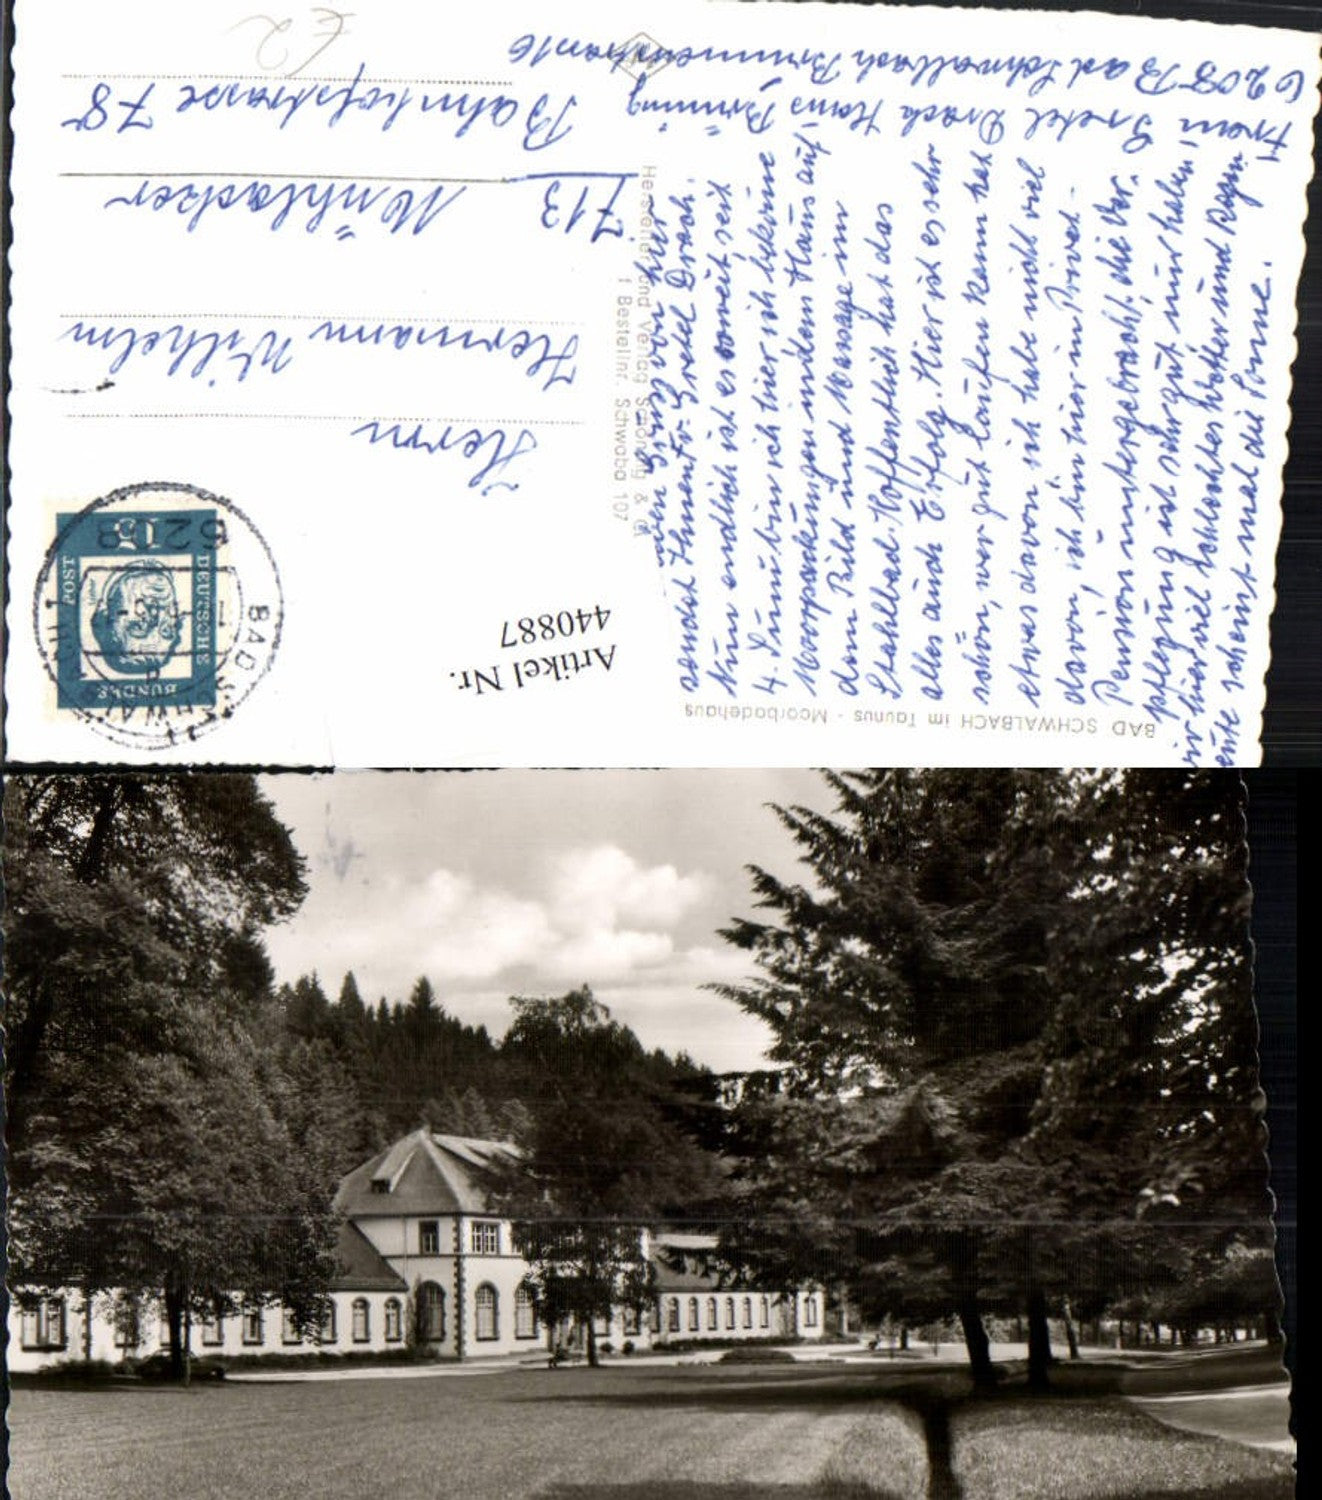 Frau Gretel Drach Haus Brünning
6208 Bad Schwalbach Brunnenstr. 16
BAD SCHWALBACH im Taunus - Moorbadehaus
sendet Ihnen Fr. Gretel Drach.
Nun endlich ist es soweit, seit
4. Juni bin ich hier ich bekomme
Moorpackungen in dem Haus auf
dem Bild und Massage im
Stahlbad. Hoffentlich hat das
alles auch Erfolg. Hier ist es sehr
schön, wer gut laufen kann hat
etwas davon ich habe nicht viel
davon, ich bin hier in Privat-
Pension untergebracht. die Ver-
pflegung ist sehr gut, nur haben
wir hier viel schlechtes Wetter und Regen
heute scheint mal die Sonne.
Hersteller und Verlag Schöning & Co
Bestellnr. Schwaba 107
DEUTSCHE
BUNDES
POST
15
6208
BAD SCHWALBACH
Herrn
Hermann Wilhelm
713
Mühlacker
Bahnhofstrasse 78
€2
Artikel Nr.
440887